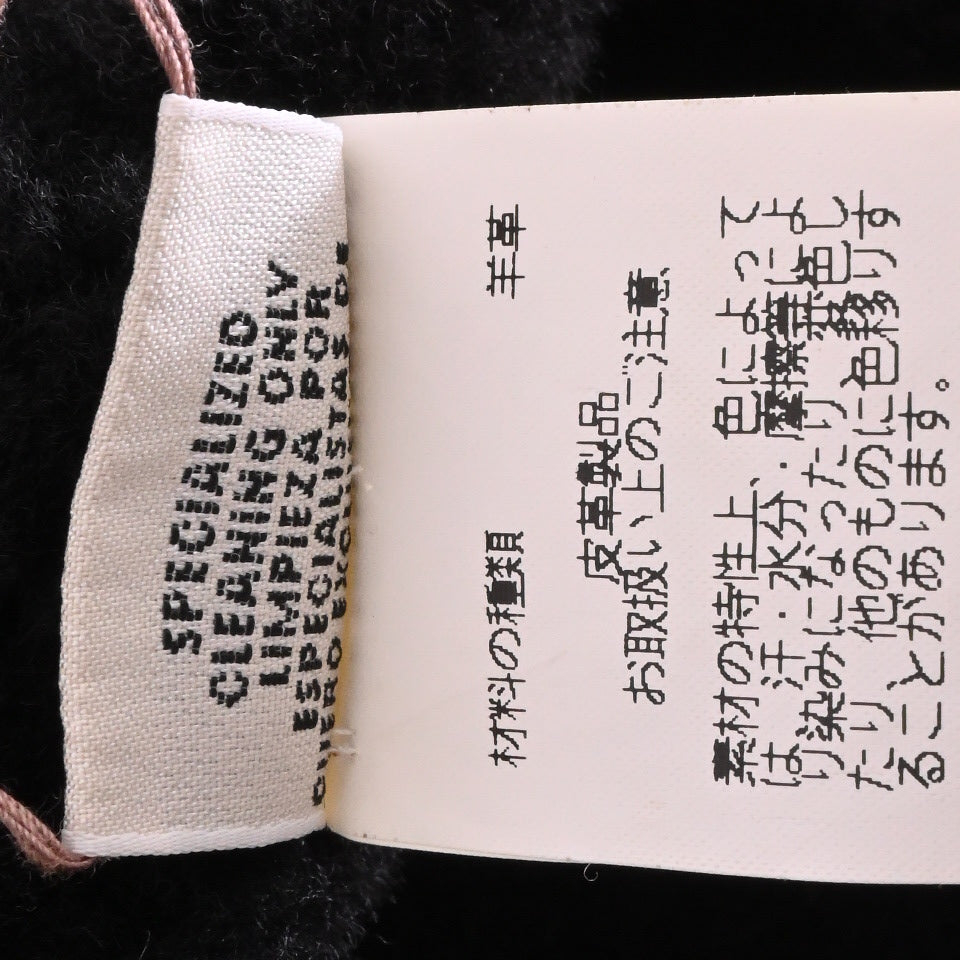 SPECIALIZED
CLEANING ONLY
LIMPIEZA POR
ESPECIALISTAS DE
CUERO EXCLU
材料の種類 羊革
皮革製品
お取扱い上のご注意
素材の特性上、色によって
は汗・水分・摩擦等によ
り染みになったり、色移し
たり他のものに色移りす
ることがあります。